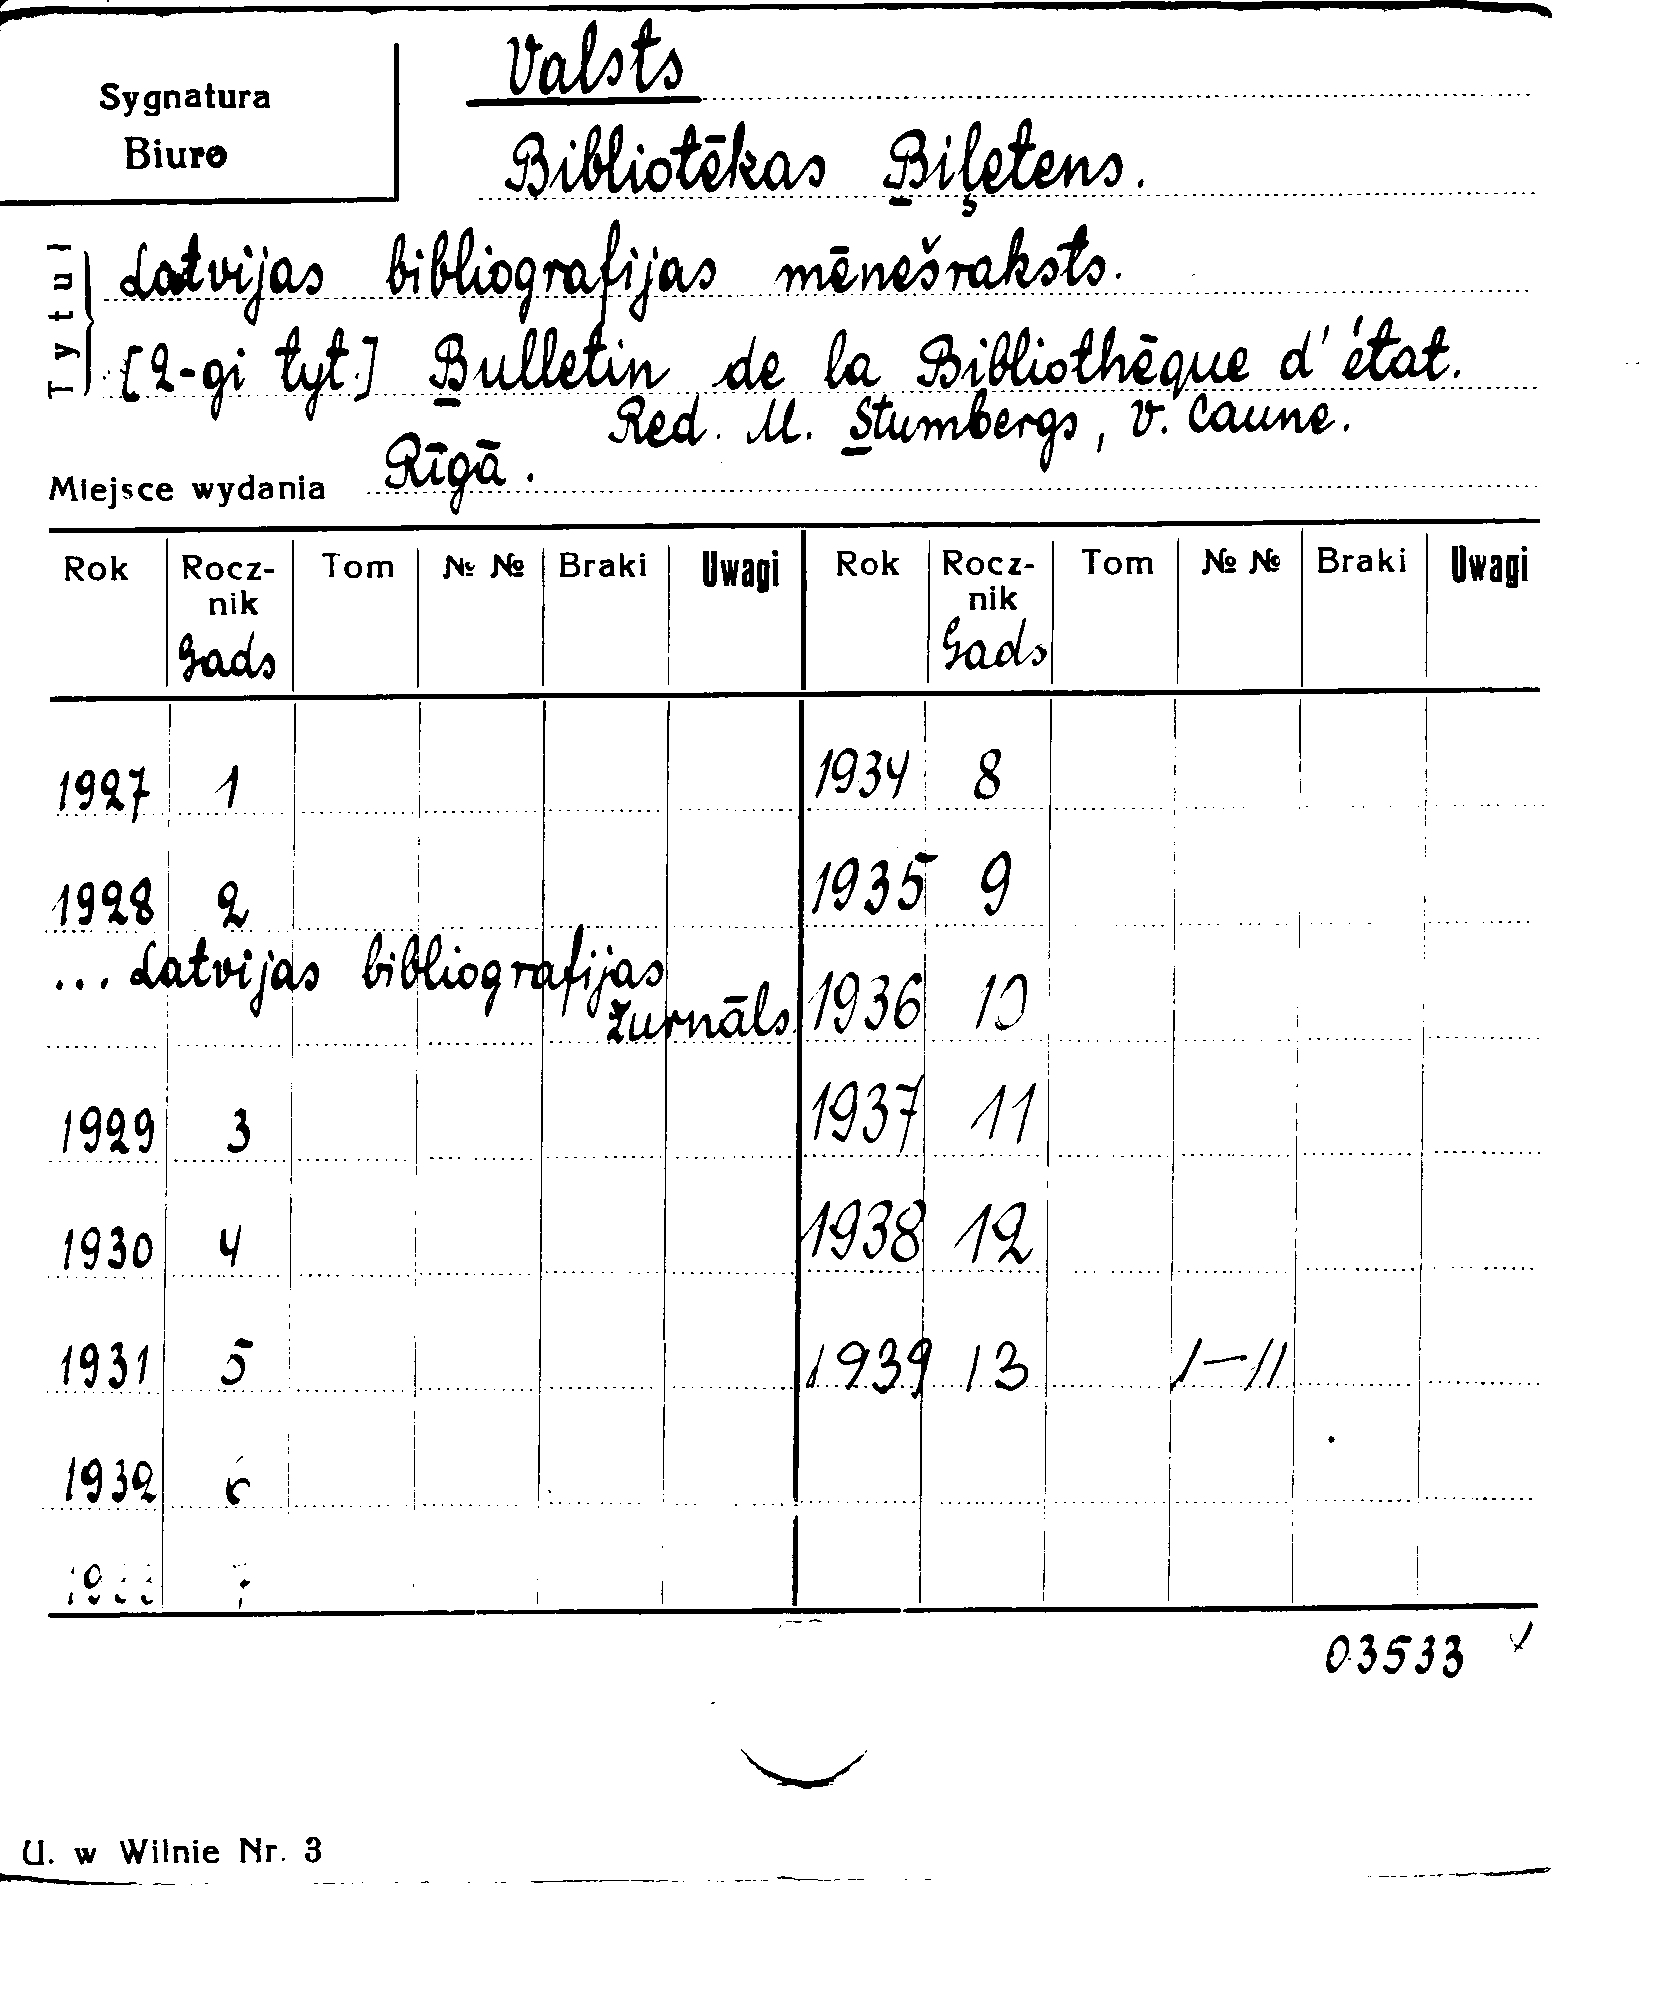 Valsts
Sygnatura
Biuro
Bibliotēkas Biļetens.
Tytuł
Latvijas bibliografijas mēnešraksts.
[2-gi tyt.] Bulletin de la Bibliothēque d'état.
Red. M. Stumbergs, V. Caune.
Miejsce wydania Rīgā.
Rok Rocz- Tom № № Braki Uwagi Rok Rocz- Tom № № Braki Uwagi
nik nik
Gads Gads
1927 1 1934 8
1928 2 1935 9
... Latvijas bibliografijas
žurnāls 1936 10
1929 3 1937 11
1930 4 1938 12
1931 5 1939 13 1-11
1932 6
1933 7
03533
U. w Wilnie Nr. 3